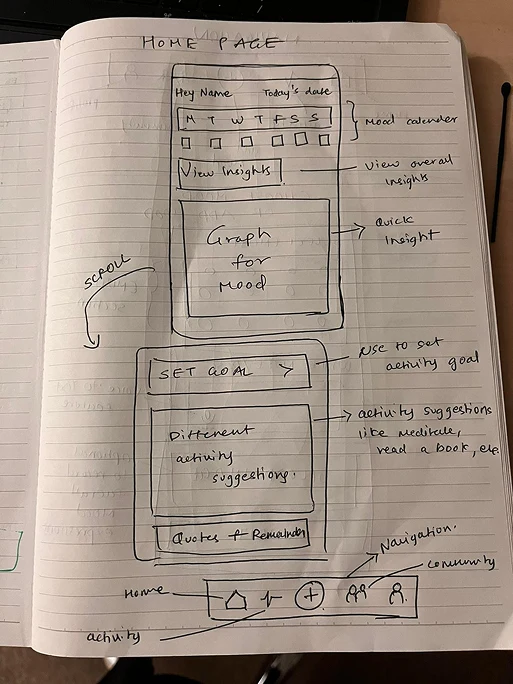 HOME PAGE
Hey Name Today's date
M T W T F S S
Mood calender
View Insights
View overall
insights
Graph
for
Mood
Quick
insight
SCROLL
SET GOAL >
Use to set
activity goal
Different
activity
suggestions.
activity suggestions
like meditate,
read a book, etc
Quotes + Remainder
Navigation.
community
Home
+
activity